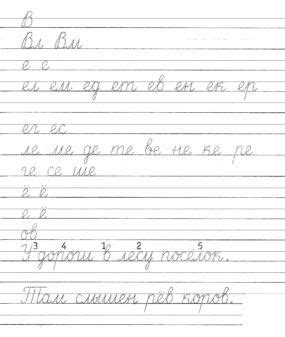 В
Вл Вм
е с
ел ем ед ет ев ен ек ер
ег ес
ле ме де те ве не ке ре
ге се ше
ё ё
е ё
ов
3 4 1 2 5
У дороги в лесу посёлок.
Там слышен рёв коров.